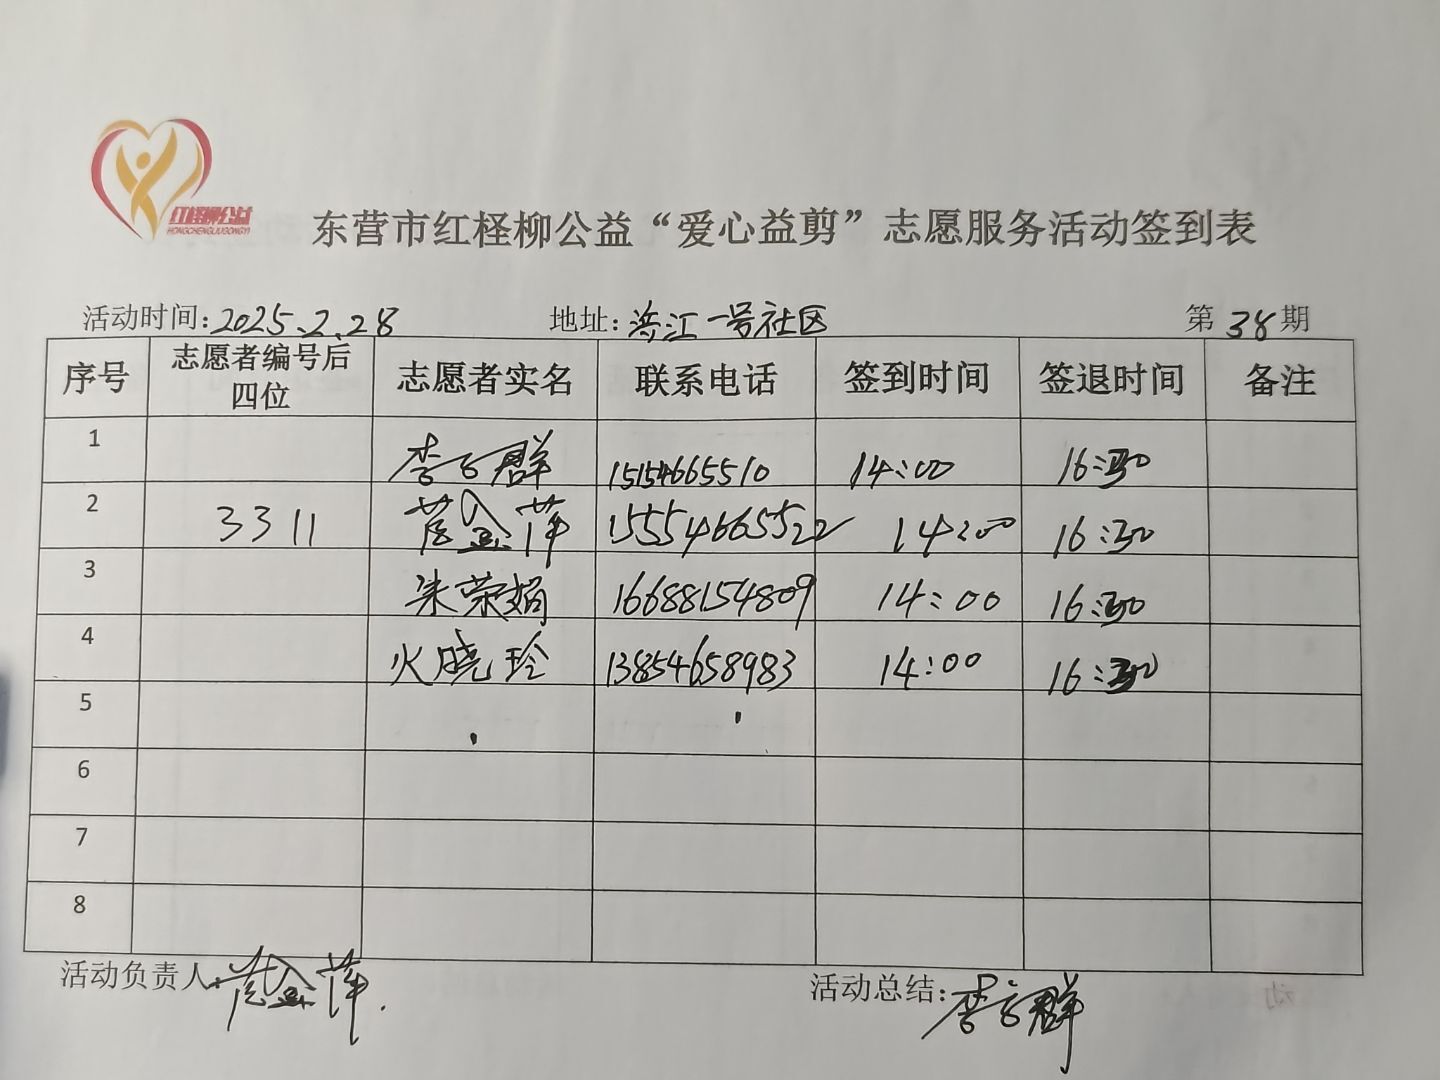 红柽柳公益
HONGCHENGLIUGONGYI
东营市红柽柳公益“爱心益剪”志愿服务活动签到表
活动时间:2025.2.28 地址:滨江一号社区 第38期
序号 志愿者编号后四位 志愿者实名 联系电话 签到时间 签退时间 备注
1 李 群 15154665510 14:00 16:30
2 3311 金萍 15554665522 14:00 16:30
3 朱荣娟 16688154809 14:00 16:30
4 火晓玲 13854658983 14:00 16:30
5
6
7
8
活动负责人: 金萍. 活动总结:李 群